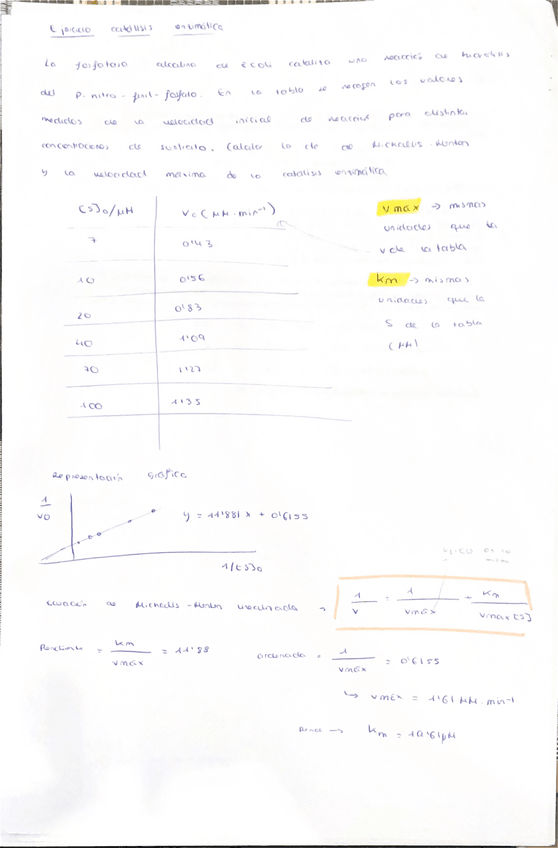 Ejercicio catálisis enzimática
La fosfatasa alcalina de E.coli cataliza una reacción de hidrólisis
del p-nitro-fenil-fosfato. En la tabla se recogen los valores
medidos de la velocidad inicial de reacción para distintas
concentraciones de sustrato. Calcular la cte de Michaelis-Menten
y la velocidad máxima de la catálisis enzimática
[S]0/μM
V0 (μM·min⁻¹)
7
0'43
10
0'56
20
0'83
40
1'09
70
1'27
100
1'35
Vmáx → mismas
unidades que la
v de la tabla
km → mismas
unidades que la
S de la tabla
(μM)
Representación gráfica
1/V0
y = 11'881x + 0'6155
1/[S]0
Ecuación de Michaelis-Menten linealizada →
1/V = 1/Vmáx + Km/Vmax[S]
Pendiente = km/vmáx = 11'88
Ordenada = 1/vmáx = 0'6155
↳ vmáx = 1'61 μM·min⁻¹
→ km =